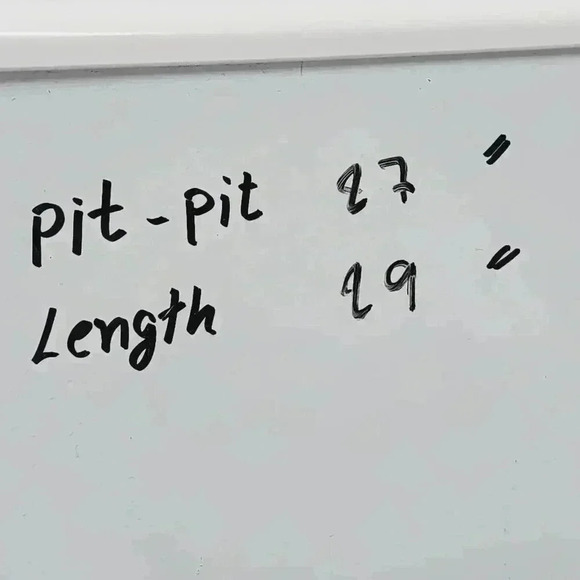 pit-pit 27 "
Length 29 "